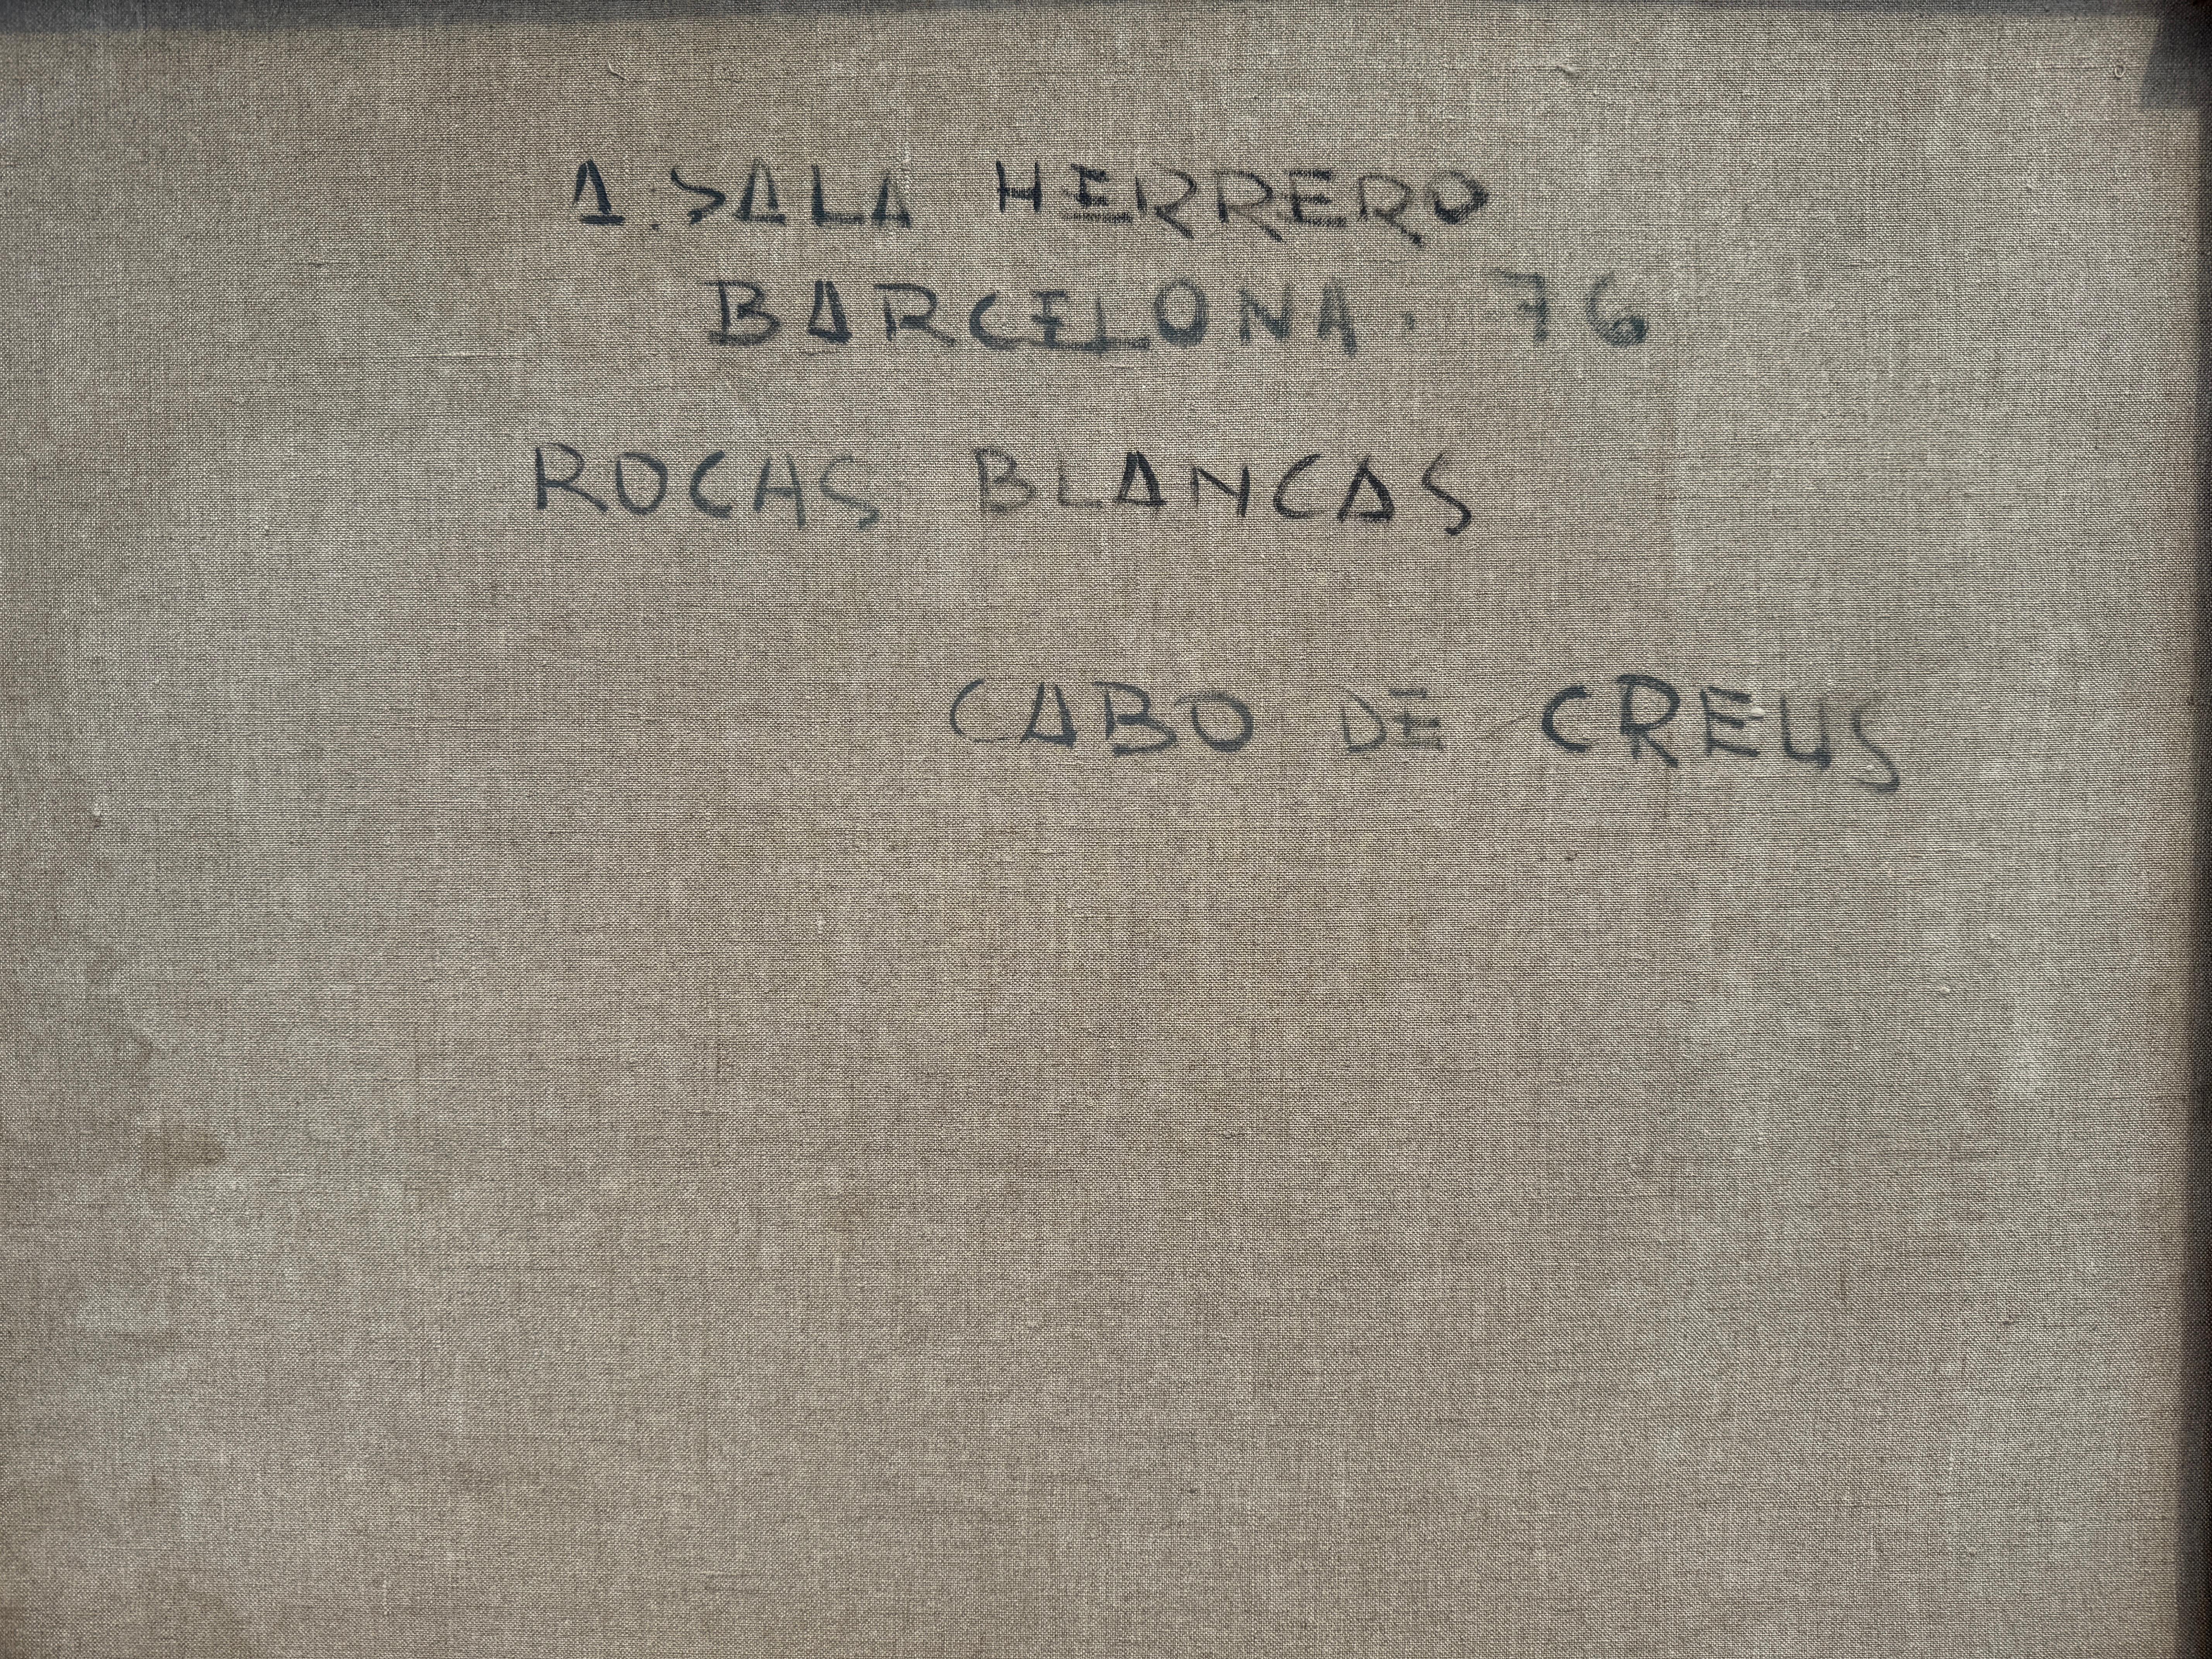 A. SALA HERRERO
BARCELONA. 76
ROCAS BLANCAS
CABO DE CREUS